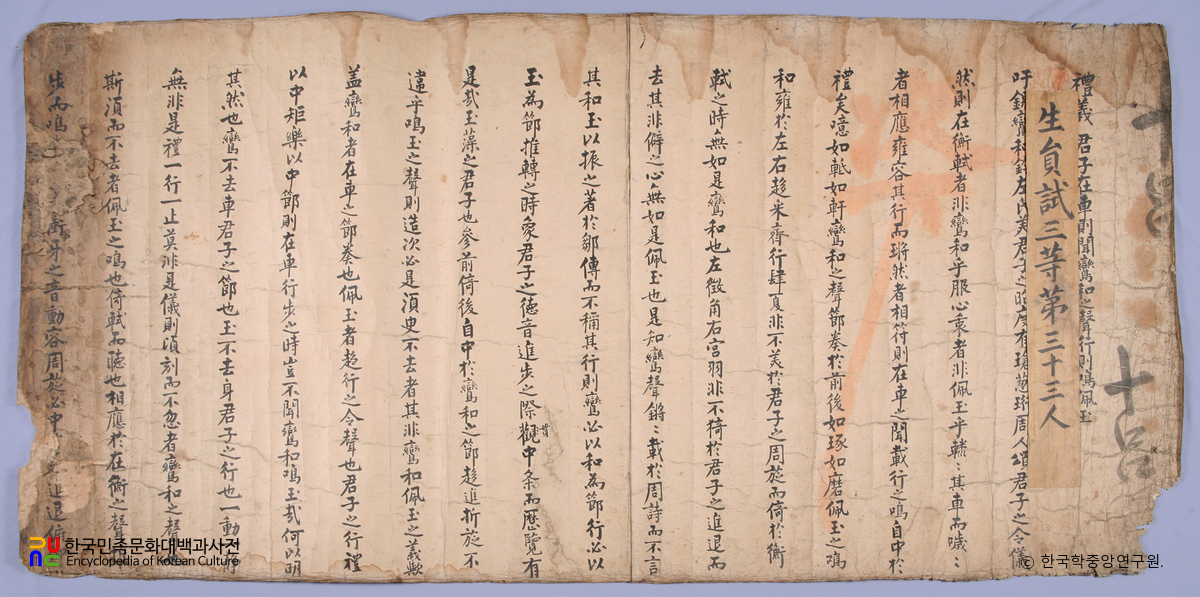 十呂
禮義 君子在車則聞鸞和之聲行則鳴佩玉
生員試三等第三十三人
吁鏘鸞和鈴左氏美君子之昭度有瑲蔥珩周人頌君子之令儀
然則在衡軾者非鸞和乎服心乗者非佩玉乎轔〻其車而噦〻
者相應雍容其行而瑲然者相符則在車之聞載行之鳴自中於
禮矣噫如軾如軒鸞和之聲節奏於前後如琢如磨佩玉之鳴
和雍於左右趍采齊行肆夏非不美於君子之周旋而倚於衡
軾之時無如是鸞和也左徵角右宮羽非不猗於君子之進退而
去其非僻之心無如是佩玉也是知鸞聲鏘〻載於周詩而不言
其和玉以振之者於鄒傳而不稱其行則鸞必以和為節行必以
玉為節推轉之時象君子之德音進步之際觀中条而歷覽有
是哉玉藻之君子也參前倚後自中於鸞和之節趍進折旋不
違乎鳴玉之聲則造次必是須臾不去者其非鸞和佩玉之義歟
盖鸞和者在車之節奏也佩玉者趍行之令聲也君子之行禮
以中矩樂以中節則在車行步之時豈不聞鸞和鳴玉哉何以明
其然也鸞不去車君子之節也玉不去身君子之行也一動
無非是禮一行一止莫非是儀則頃刻而不忽者鸞和之聲
斯須而不去者佩玉之鳴也倚軾而聽也相應於在衡之聲
步而鳴 衝牙之音動容周旋必中 進退
한국민족문화대백과사전
Encyclopedia of Korean Culture
ⓒ 한국학중앙연구원.